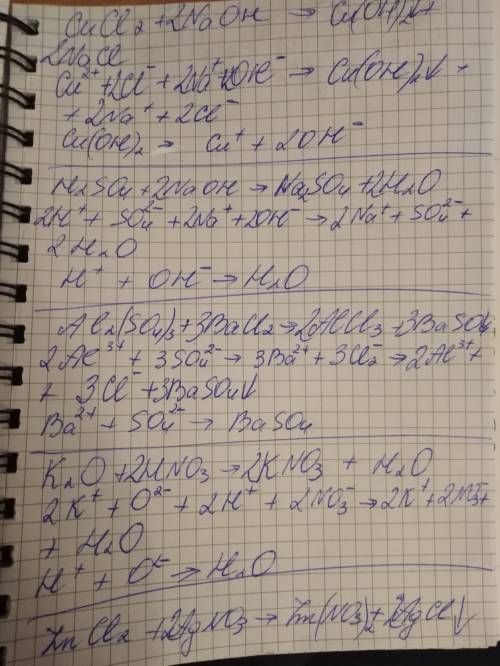 CuCl2 + 2NaOH → Cu(OH)2↓+
2NaCl
Cu²⁺+2Cl⁻ + 2Na⁺+2OH⁻ → Cu(OH)2↓ +
+ 2Na⁺ + 2Cl⁻
Cu(OH)2 → Cu⁺ + 2OH⁻
H2SO4 + 2NaOH → Na2SO4 + 2H2O
2H⁺ + SO4²⁻ + 2Na⁺ + 2OH⁻ → 2Na⁺ + SO4²⁻ +
2H2O
H⁺ + OH⁻ → H2O
Al2(SO4)3 + 3BaCl2 → 2AlCl3 + 3BaSO4↓
2Al³⁺ + 3SO4²⁻ → 3Ba²⁺ + 3Cl2⁻ → 2Al³⁺ +
+ 3Cl⁻ + 3BaSO4↓
Ba²⁺ + SO4²⁻ → BaSO4
K2O + 2HNO3 → 2KNO3 + H2O
2K⁺ + O²⁻ + 2H⁺ + 2NO3⁻ → 2K⁺ + 2NO3⁻ +
+ H2O
H⁺ + O⁻ → H2O
ZnCl2 + 2AgNO3 → Zn(NO3)2 + 2AgCl↓